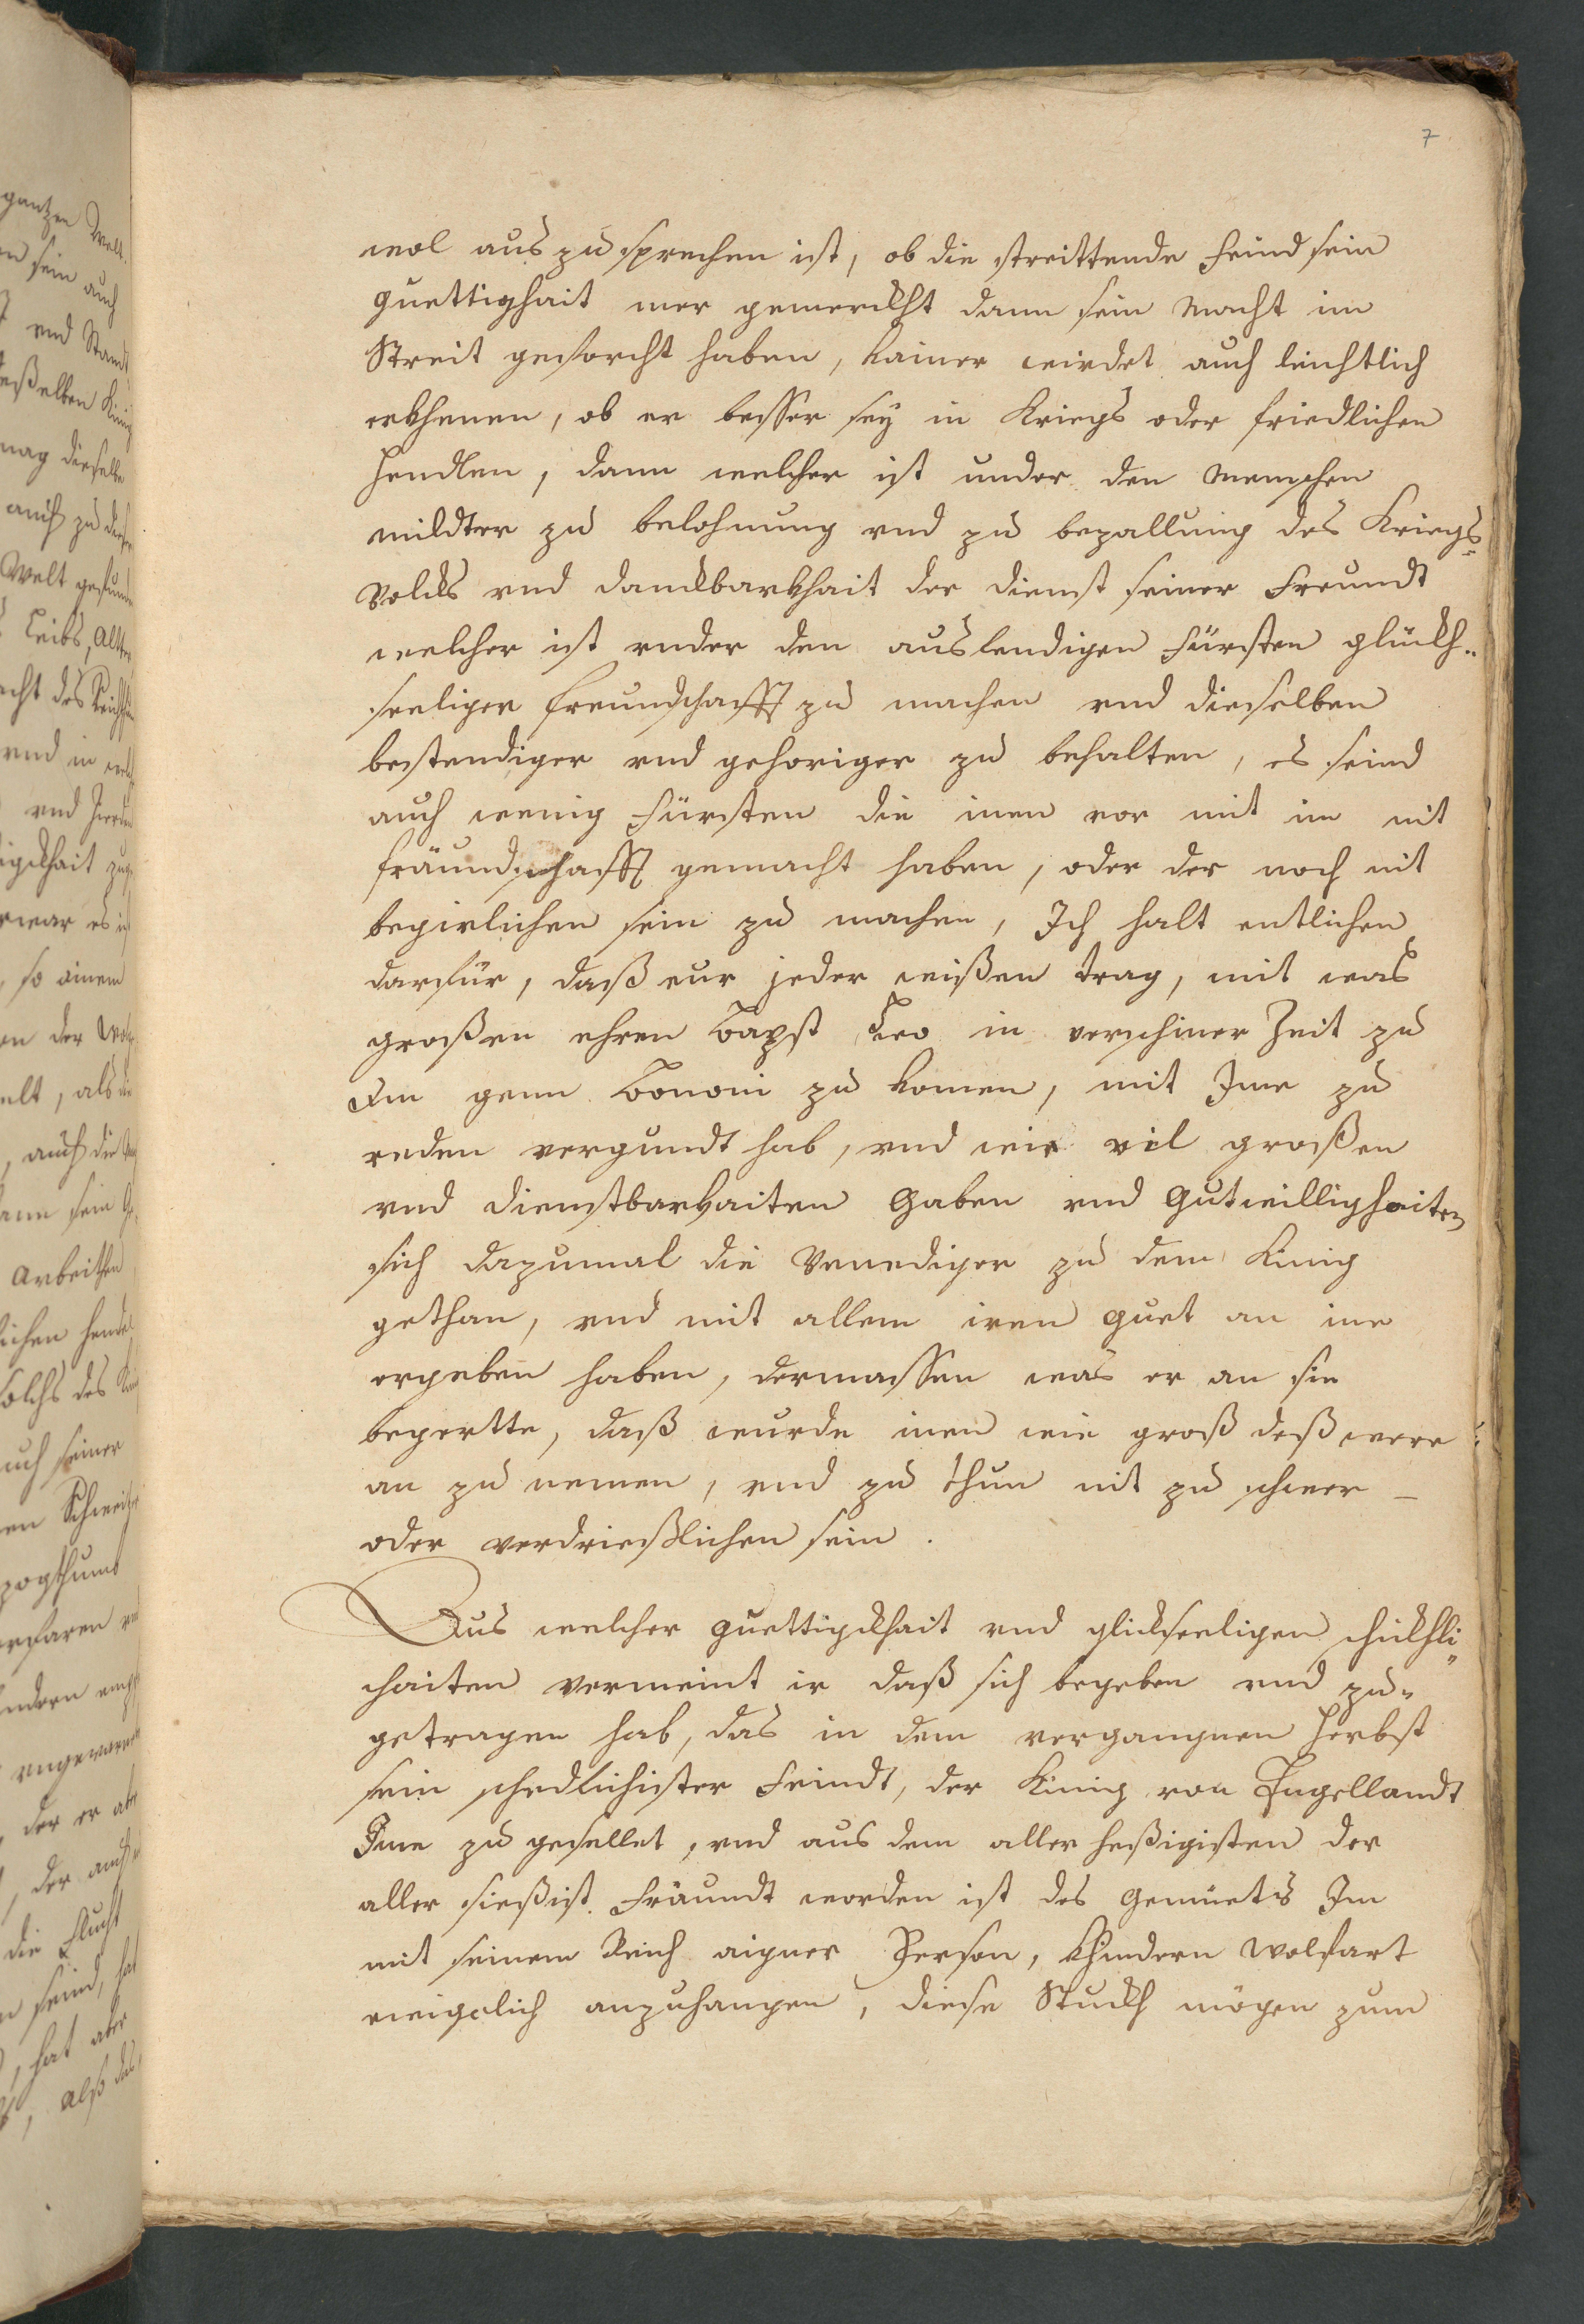 7
wol aus zu sprechen ist, ob die streittende Feind sein
guettigkhait mer gemerckht dann sein Macht im
Streit geforcht haben, kainer wirdet auch leichtlich
erkhenen, ob er besser seÿ in Kriegs oder friedlichen
Hendlen, dann welcher ist under den Menschen
mildter zu belohnung vnd zu bezallung des Kriegs=
Volcks vnd danckbarkhait der dienst seiner Freundt
welcher ist vnder den auslendigen Fürsten glückh=
seeliger freundschafft zu machen vnd dieselben
bestendiger vnd gehoriger zu behalten, es seind
auch wenig Fürsten die inen vor mit im nit
fräundschafft gemacht haben, oder der noch nit
begirlichen sein zu machen, Ich halt entlichen
darfür, daß eur jeder wißen trag, mit was
großen ehren Bapst Leo in verschiner Zeit zu
Im genn Bononi zu komen, mit Ime zu
reden vergundt hab, vnd wie vil großen
vnd dienstbarkaiten Gaben vnd Gutwilligkhaiten
sich dazumal die Venediger zu dem Kinig
gethan, vnd mit allem iren guet an ine
ergeben haben, dermassen was er an sie
begertte, daß wurde inen wie groß deß were
an zu nemen, vnd zu thun nit zu schwer
oder verdrießlichen sein.
Aus welcher guettigckhait vnd glickseeligen schickhli=
chaiten vermeint ir daß sich begeben vnd zu=
getragen hab, das in dem vergangnen Herbst
sein schedlichister Feindt, der Kinig von Engellandt
Ime zu gesellet, vnd aus dem aller heßigisten der
aller sießist Fräundt worden ist des Gemüets Im
mit seinem Reich aigner Person, Khindern wolfart
ewigclich anzuhangen, diese Stuckh mögen zum